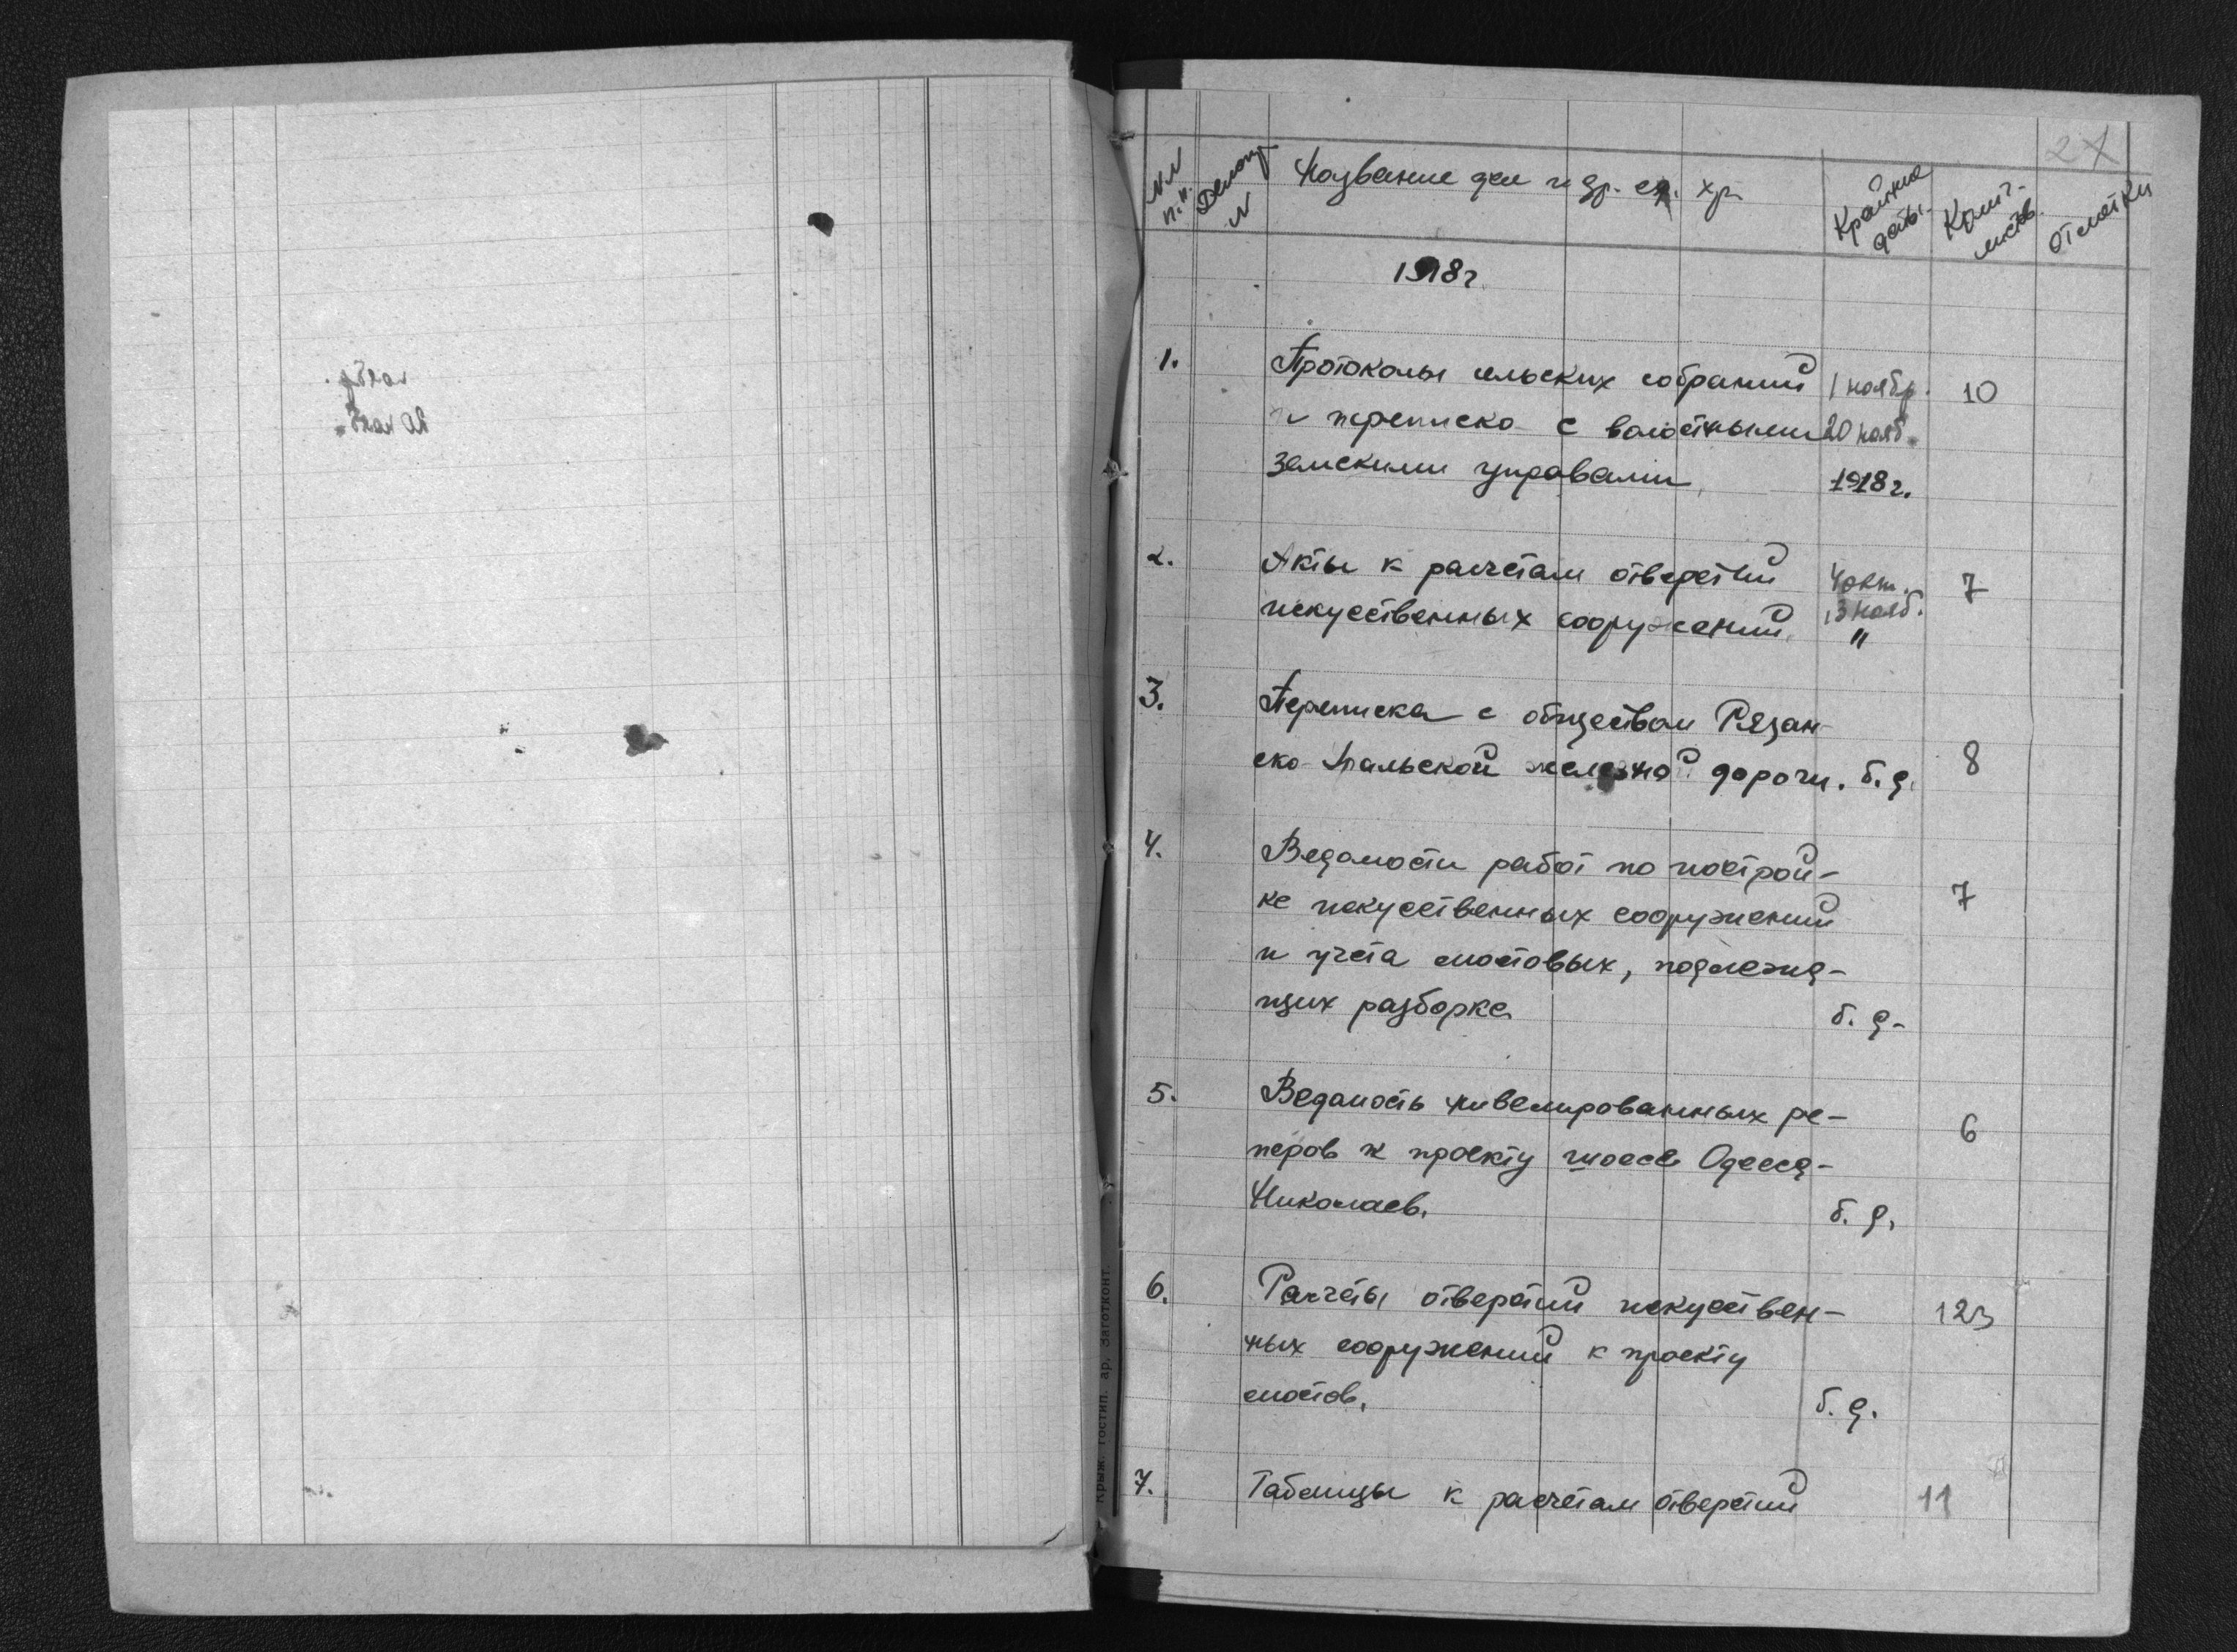 NN п.п.
Делопр N
Название дел и др. ед. хр.
Крайние даты.
Колич. листов.
Отметки
1918 г.
1. Протоколы сельских собраний 1 ноябр. 10
и переписка с волостными 20 нояб.
земскими управами, 1918 г.
2. Акты к расчетам отверстий 4 окт. 7
искуственных сооружений. 13 нояб. "
3. Переписка с обществом Рязан-
ско-Уральской железной дороги. б.д. 8
4. Ведомости работ по построй-
ке искуственных сооружений 7
и учета мостовых, подлежа-
щих разборке б.д.
5. Ведомость нивелированных ре-
перов к проекту шоссе Одесса- 6
Николаев. б.д.
6. Расчеты отверстий искуствен- 123
ных сооружений к проекту
мостов. б.д.
7. Таблицы к расчетам отверстий 11
Крыж. гостип. ар. Заготконт.